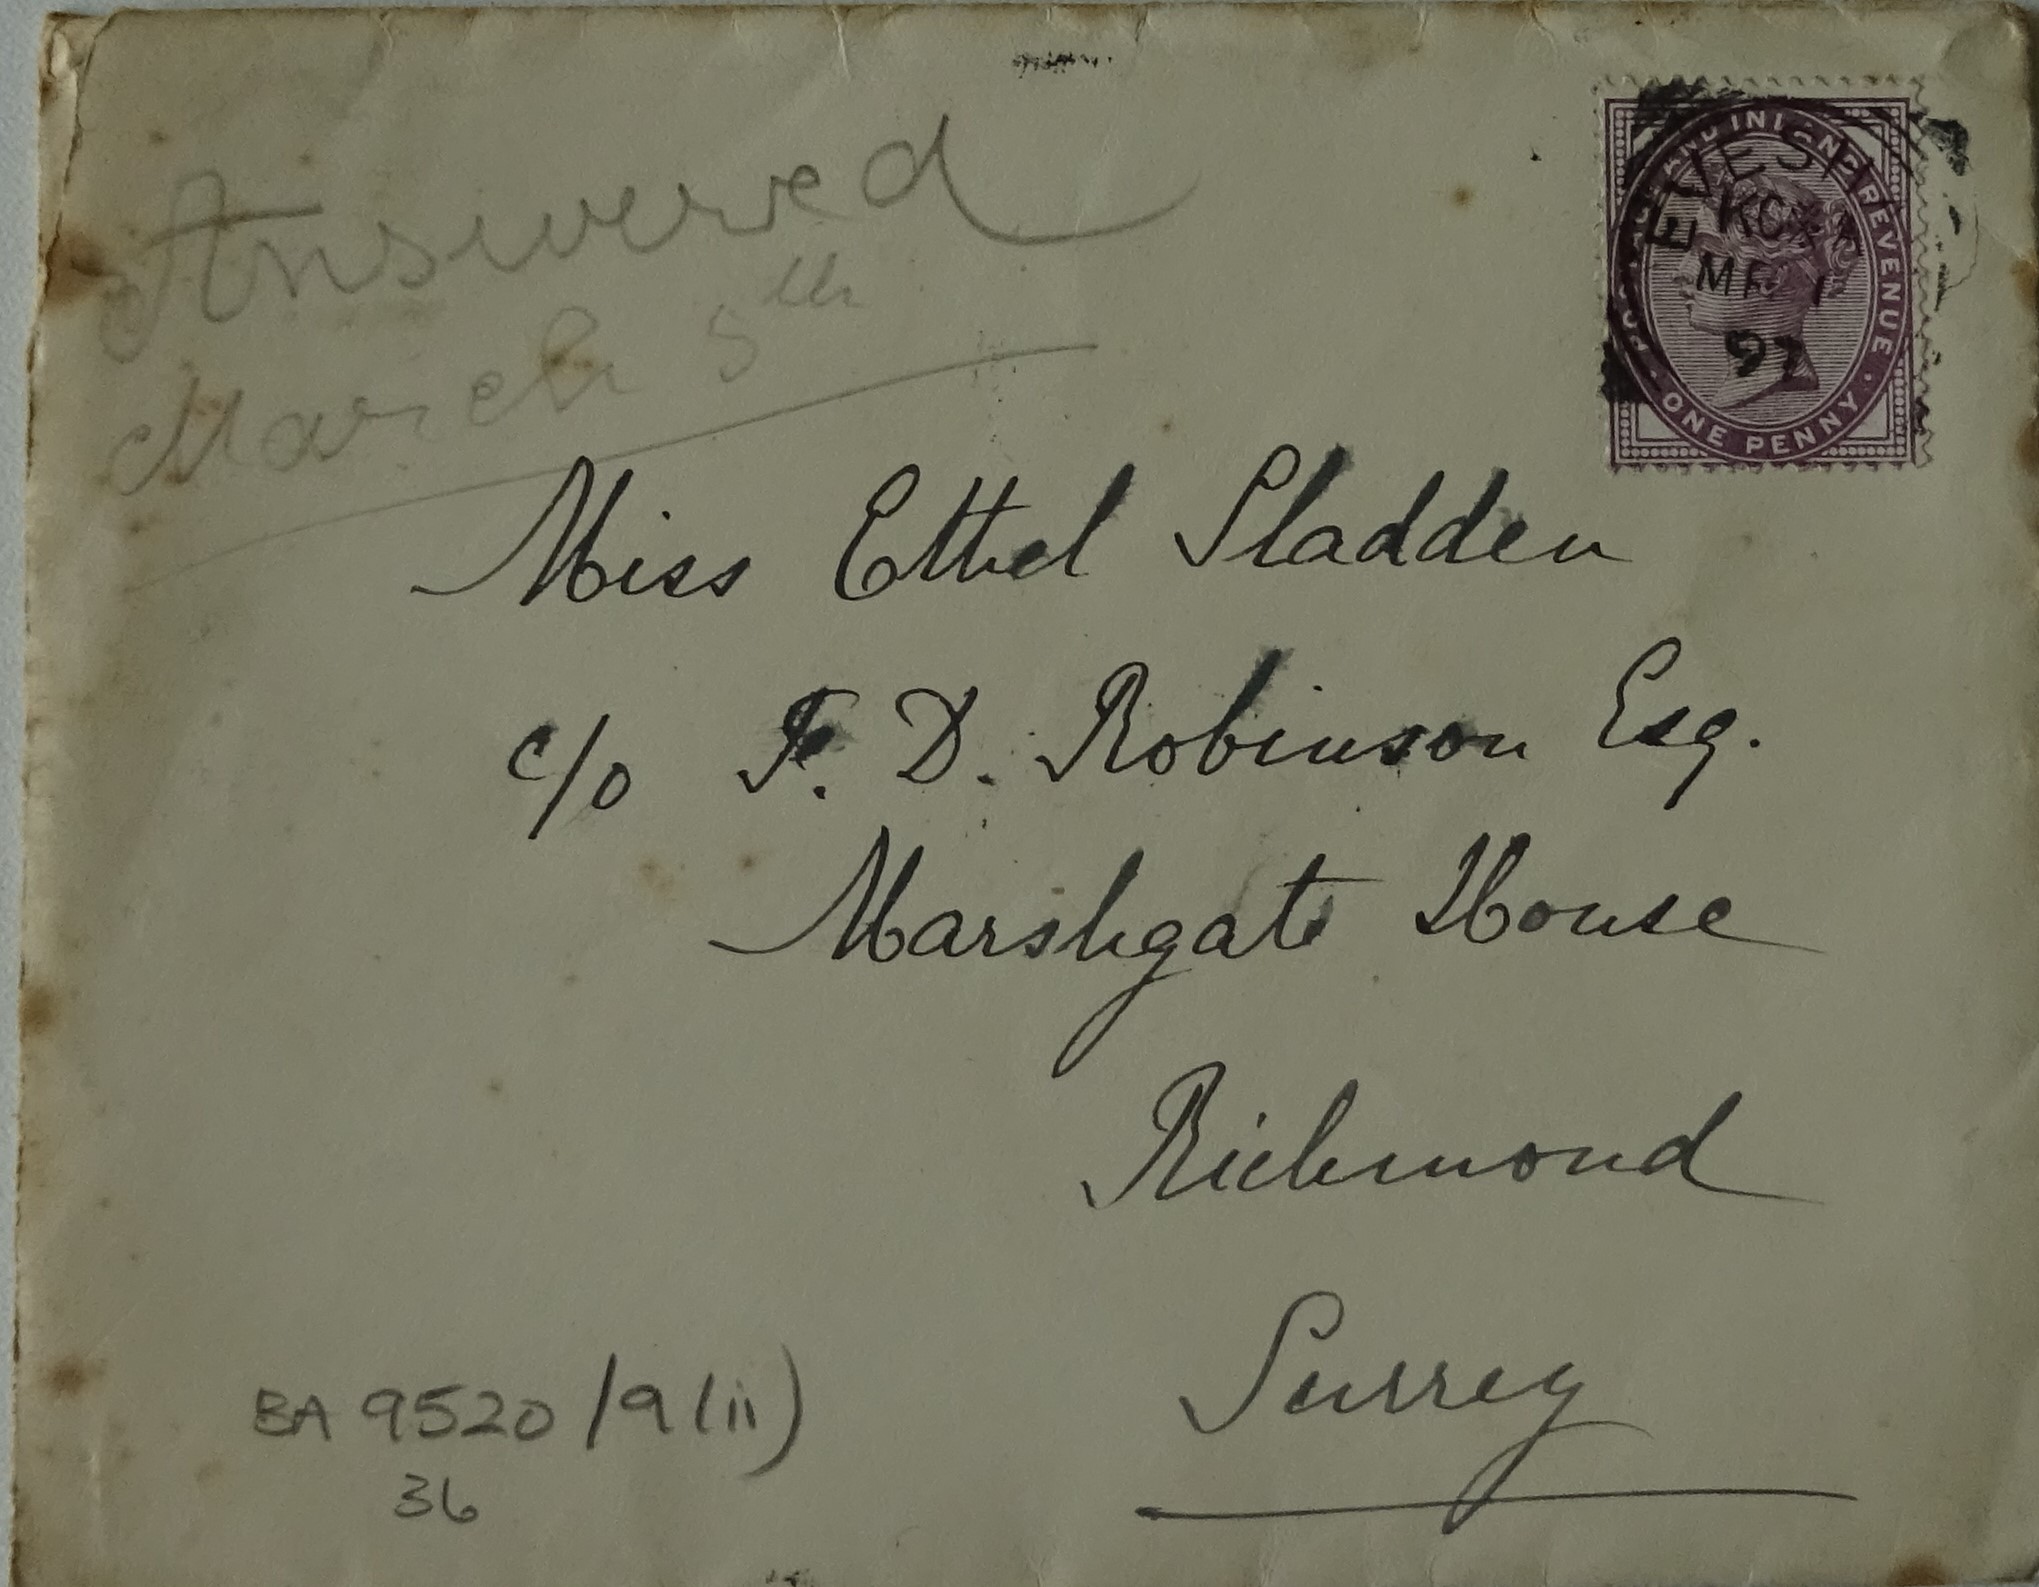 Answered
March 5th
POSTAGE AND INLAND REVENUE
ONE PENNY
EVESH
MR 1
97
Miss Ethel Sladden
c/o F. D. Robinson Esq.
Marshgate House
Richmond
Surrey
BA 9520/9(ii)
36